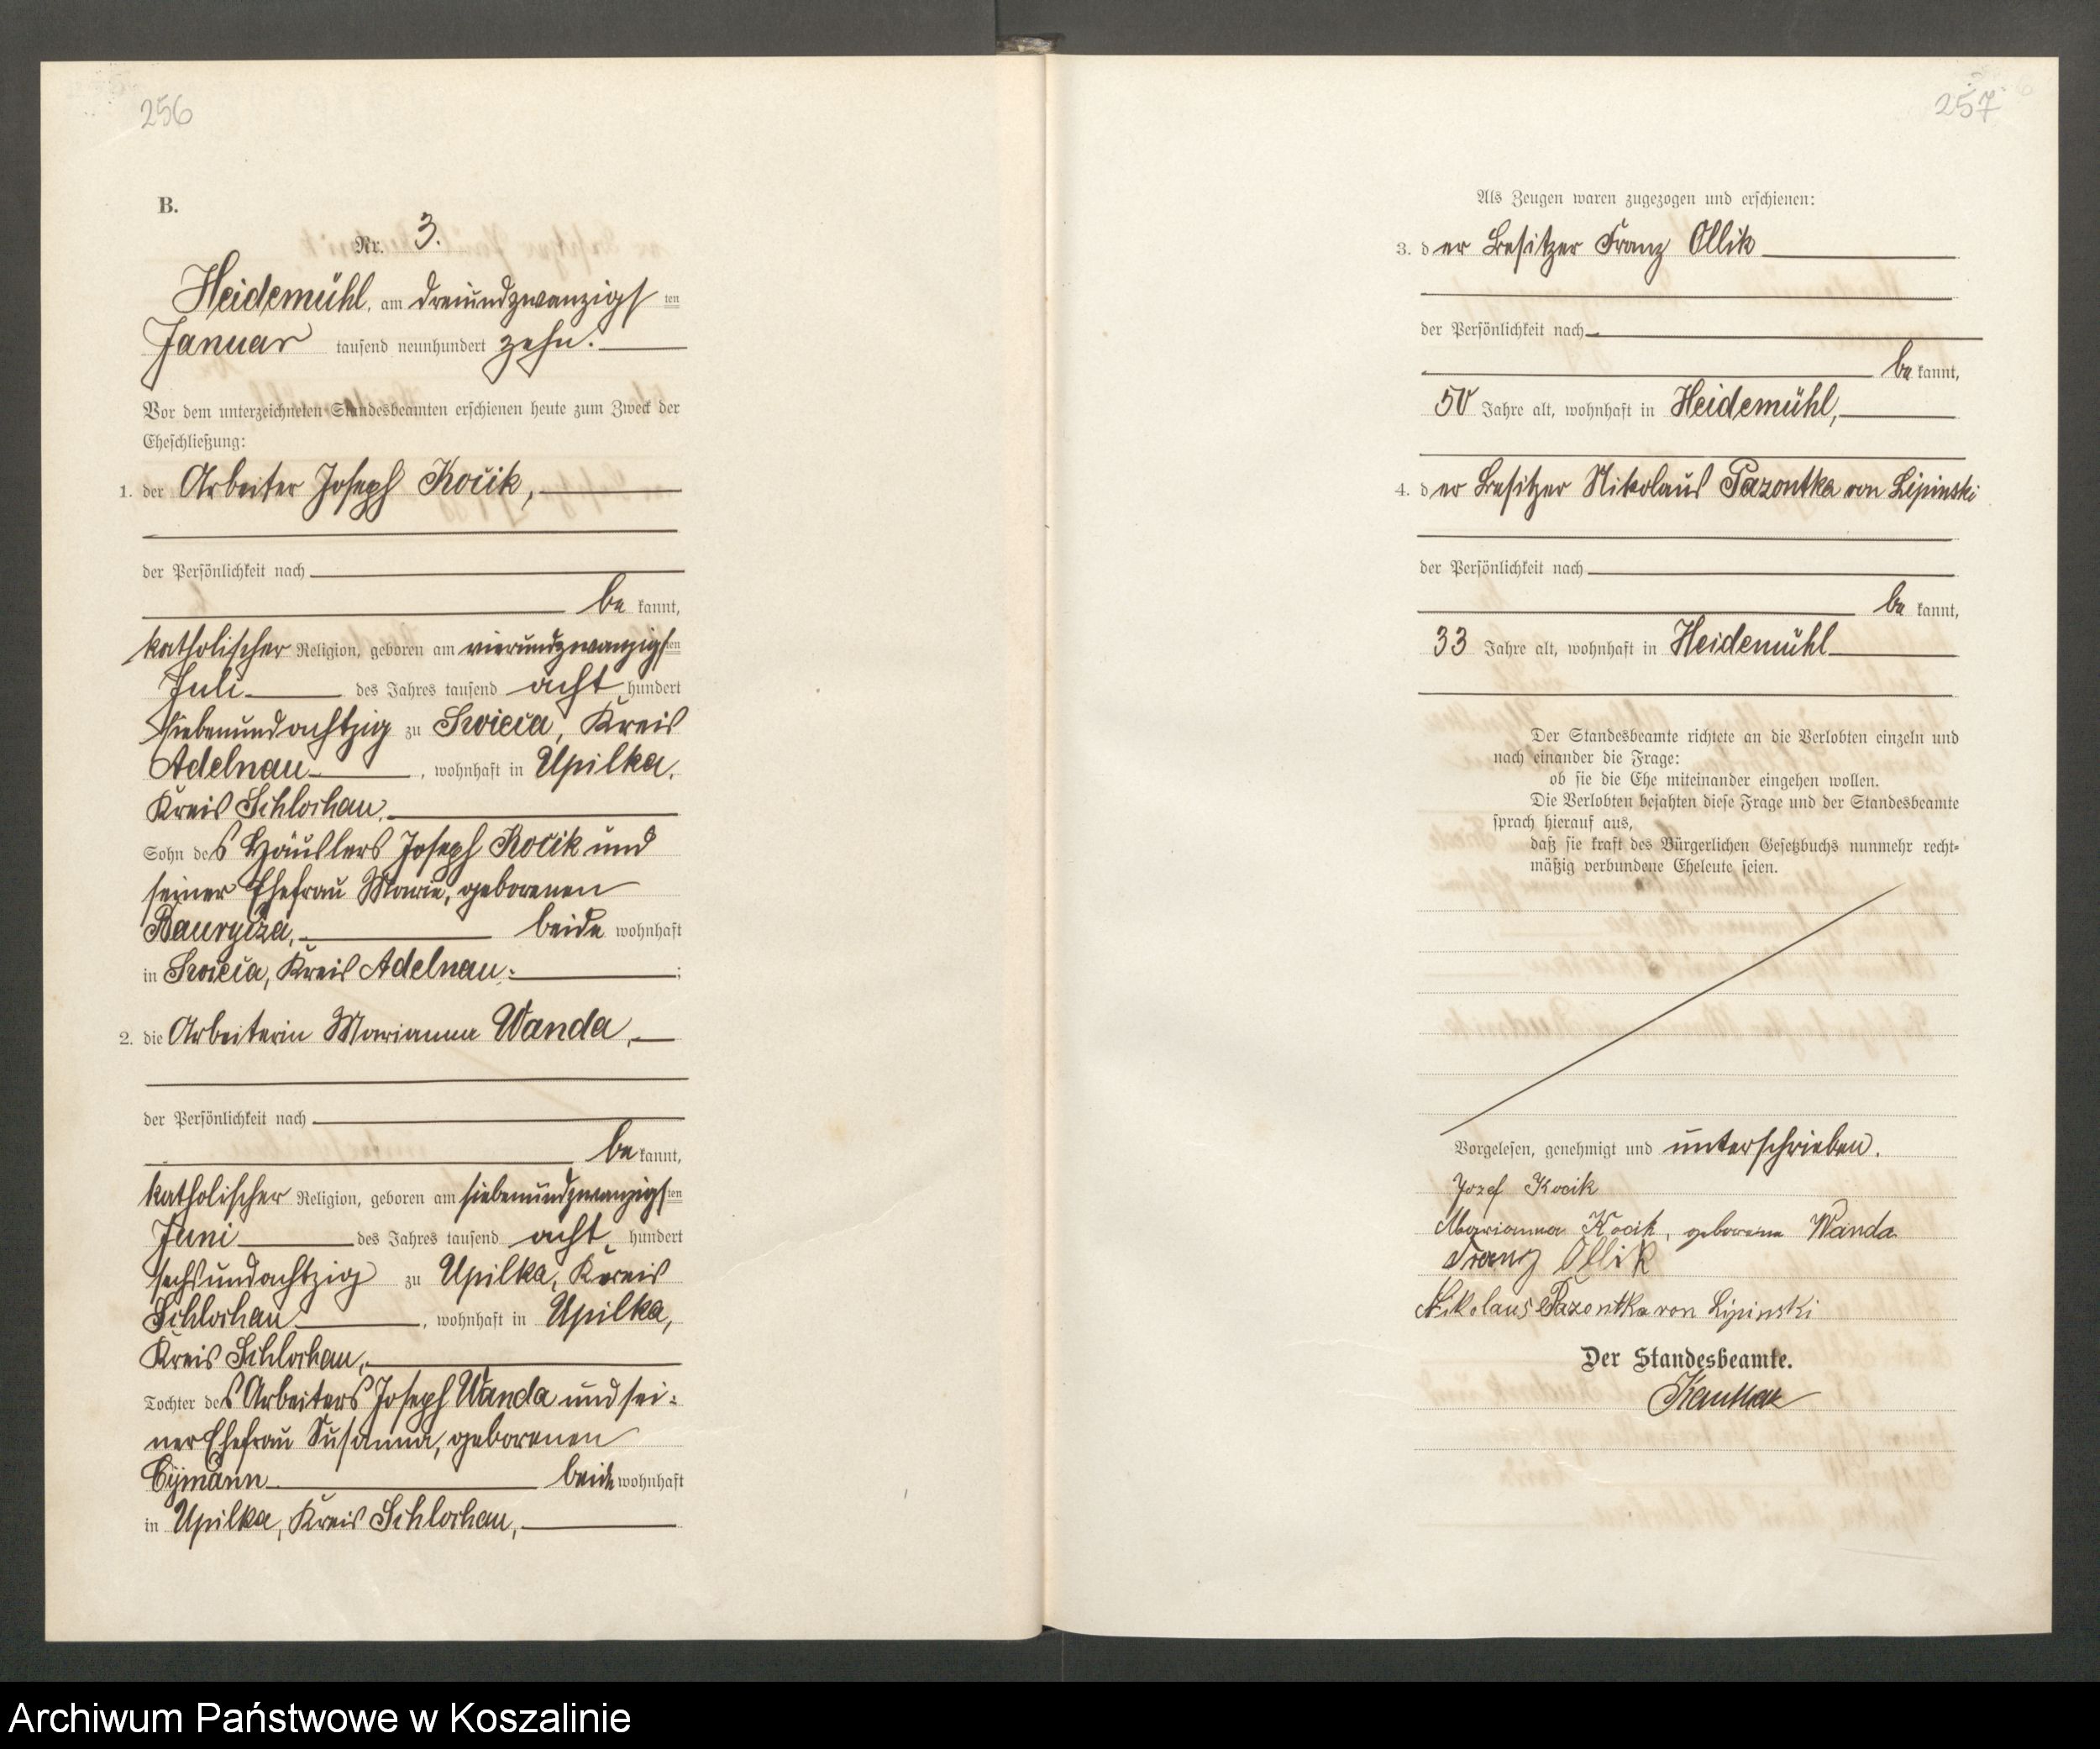 256
B.
Nr. 3.
Heidemühl, am dreiundzwanzigsten
Januar tausend neunhundert zehn.
Vor dem unterzeichneten Standesbeamten erschienen heute zum Zweck der
Eheschließung:
1. der Arbeiter Joseph Kocik,
der Persönlichkeit nach
be kannt,
katholischer Religion, geboren am vierundzwanzigsten
Juli des Jahres tausend acht hundert
siebenundachtzig zu Swieca, Kreis
Adelnau, wohnhaft in Upilka,
Kreis Schlochau,
Sohn des Häuslers Joseph Kocik und
seiner Ehefrau Marie, geborenen
beide wohnhaft
in Swieca, Kreis Adelnau;
2. die Arbeiterin Marianna Wanda,
der Persönlichkeit nach
be kannt,
katholischer Religion, geboren am siebenundzwanzigsten
Juni des Jahres tausend acht hundert
sechsundachtzig zu Upilka, Kreis
Schlochau, wohnhaft in Upilka,
Kreis Schlochau,
Tochter des Arbeiters Joseph Wanda und sei-
ner Ehefrau Susanna, geborenen
Cymann beide wohnhaft
in Upilka, Kreis Schlochau,
257
Als Zeugen waren zugezogen und erschienen:
3. der Besitzer Franz Ollik
der Persönlichkeit nach
be kannt,
50 Jahre alt, wohnhaft in Heidemühl,
4. der Besitzer Nikolaus Pazontka von Lipinski
der Persönlichkeit nach
be kannt,
33 Jahre alt, wohnhaft in Heidemühl
Der Standesbeamte richtete an die Verlobten einzeln und
nach einander die Frage:
ob sie die Ehe miteinander eingehen wollen.
Die Verlobten bejahten diese Frage und der Standesbeamte
sprach hierauf aus,
daß sie kraft des Bürgerlichen Gesetzbuchs nunmehr recht-
mäßig verbundene Eheleute seien.
Vorgelesen, genehmigt und unterschrieben.
Jozef Kocik
Marianna Kocik, geborene Wanda
Franz Ollik
Nikolaus Pazontka von Lipinski
Der Standesbeamte.
Archiwum Państwowe w Koszalinie